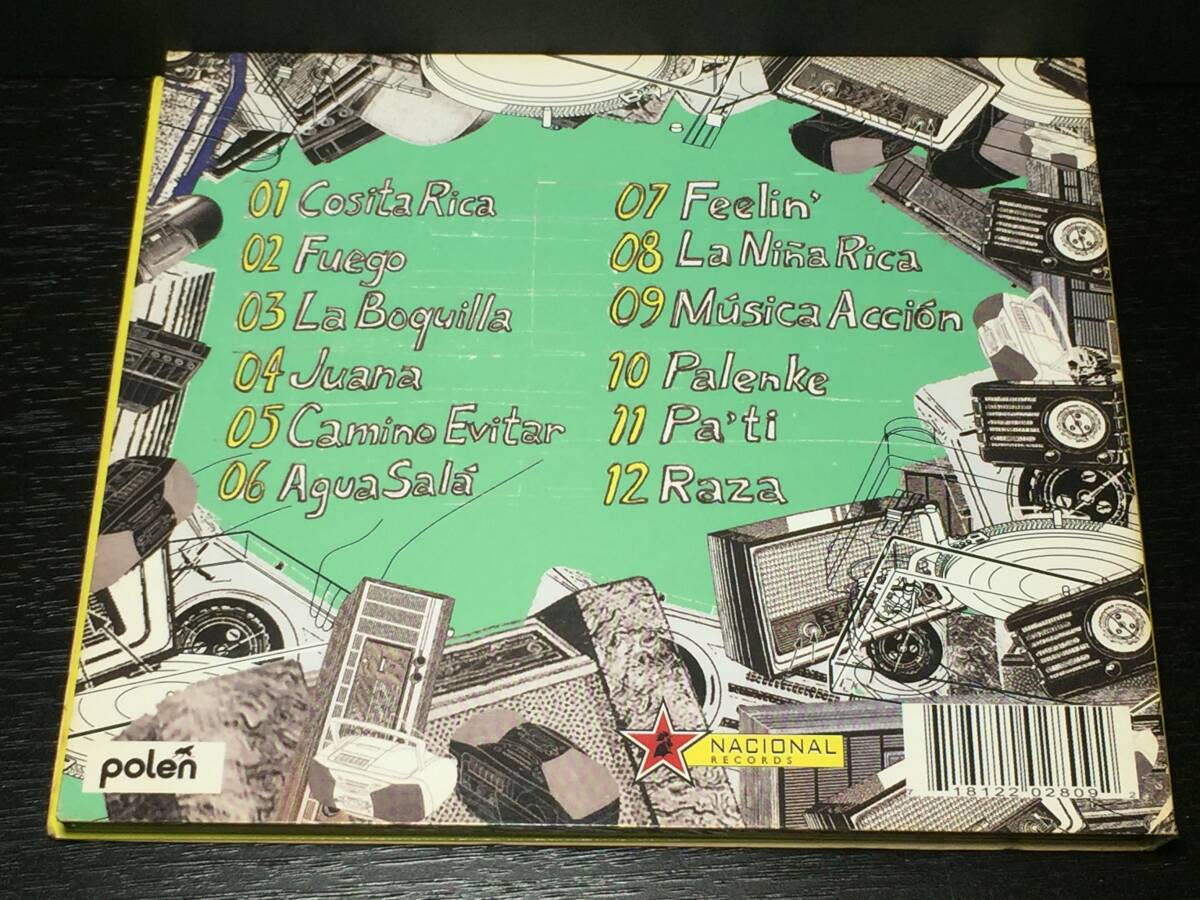 01 Cosita Rica
02 Fuego
03 La Boquilla
04 Juana
05 Camino Evitar
06 Agua Salá
07 Feelin'
08 La Niña Rica
09 Música Acción
10 Palenke
11 Pa'ti
12 Raza
polen
NACIONAL
RECORDS
18122 02809 2